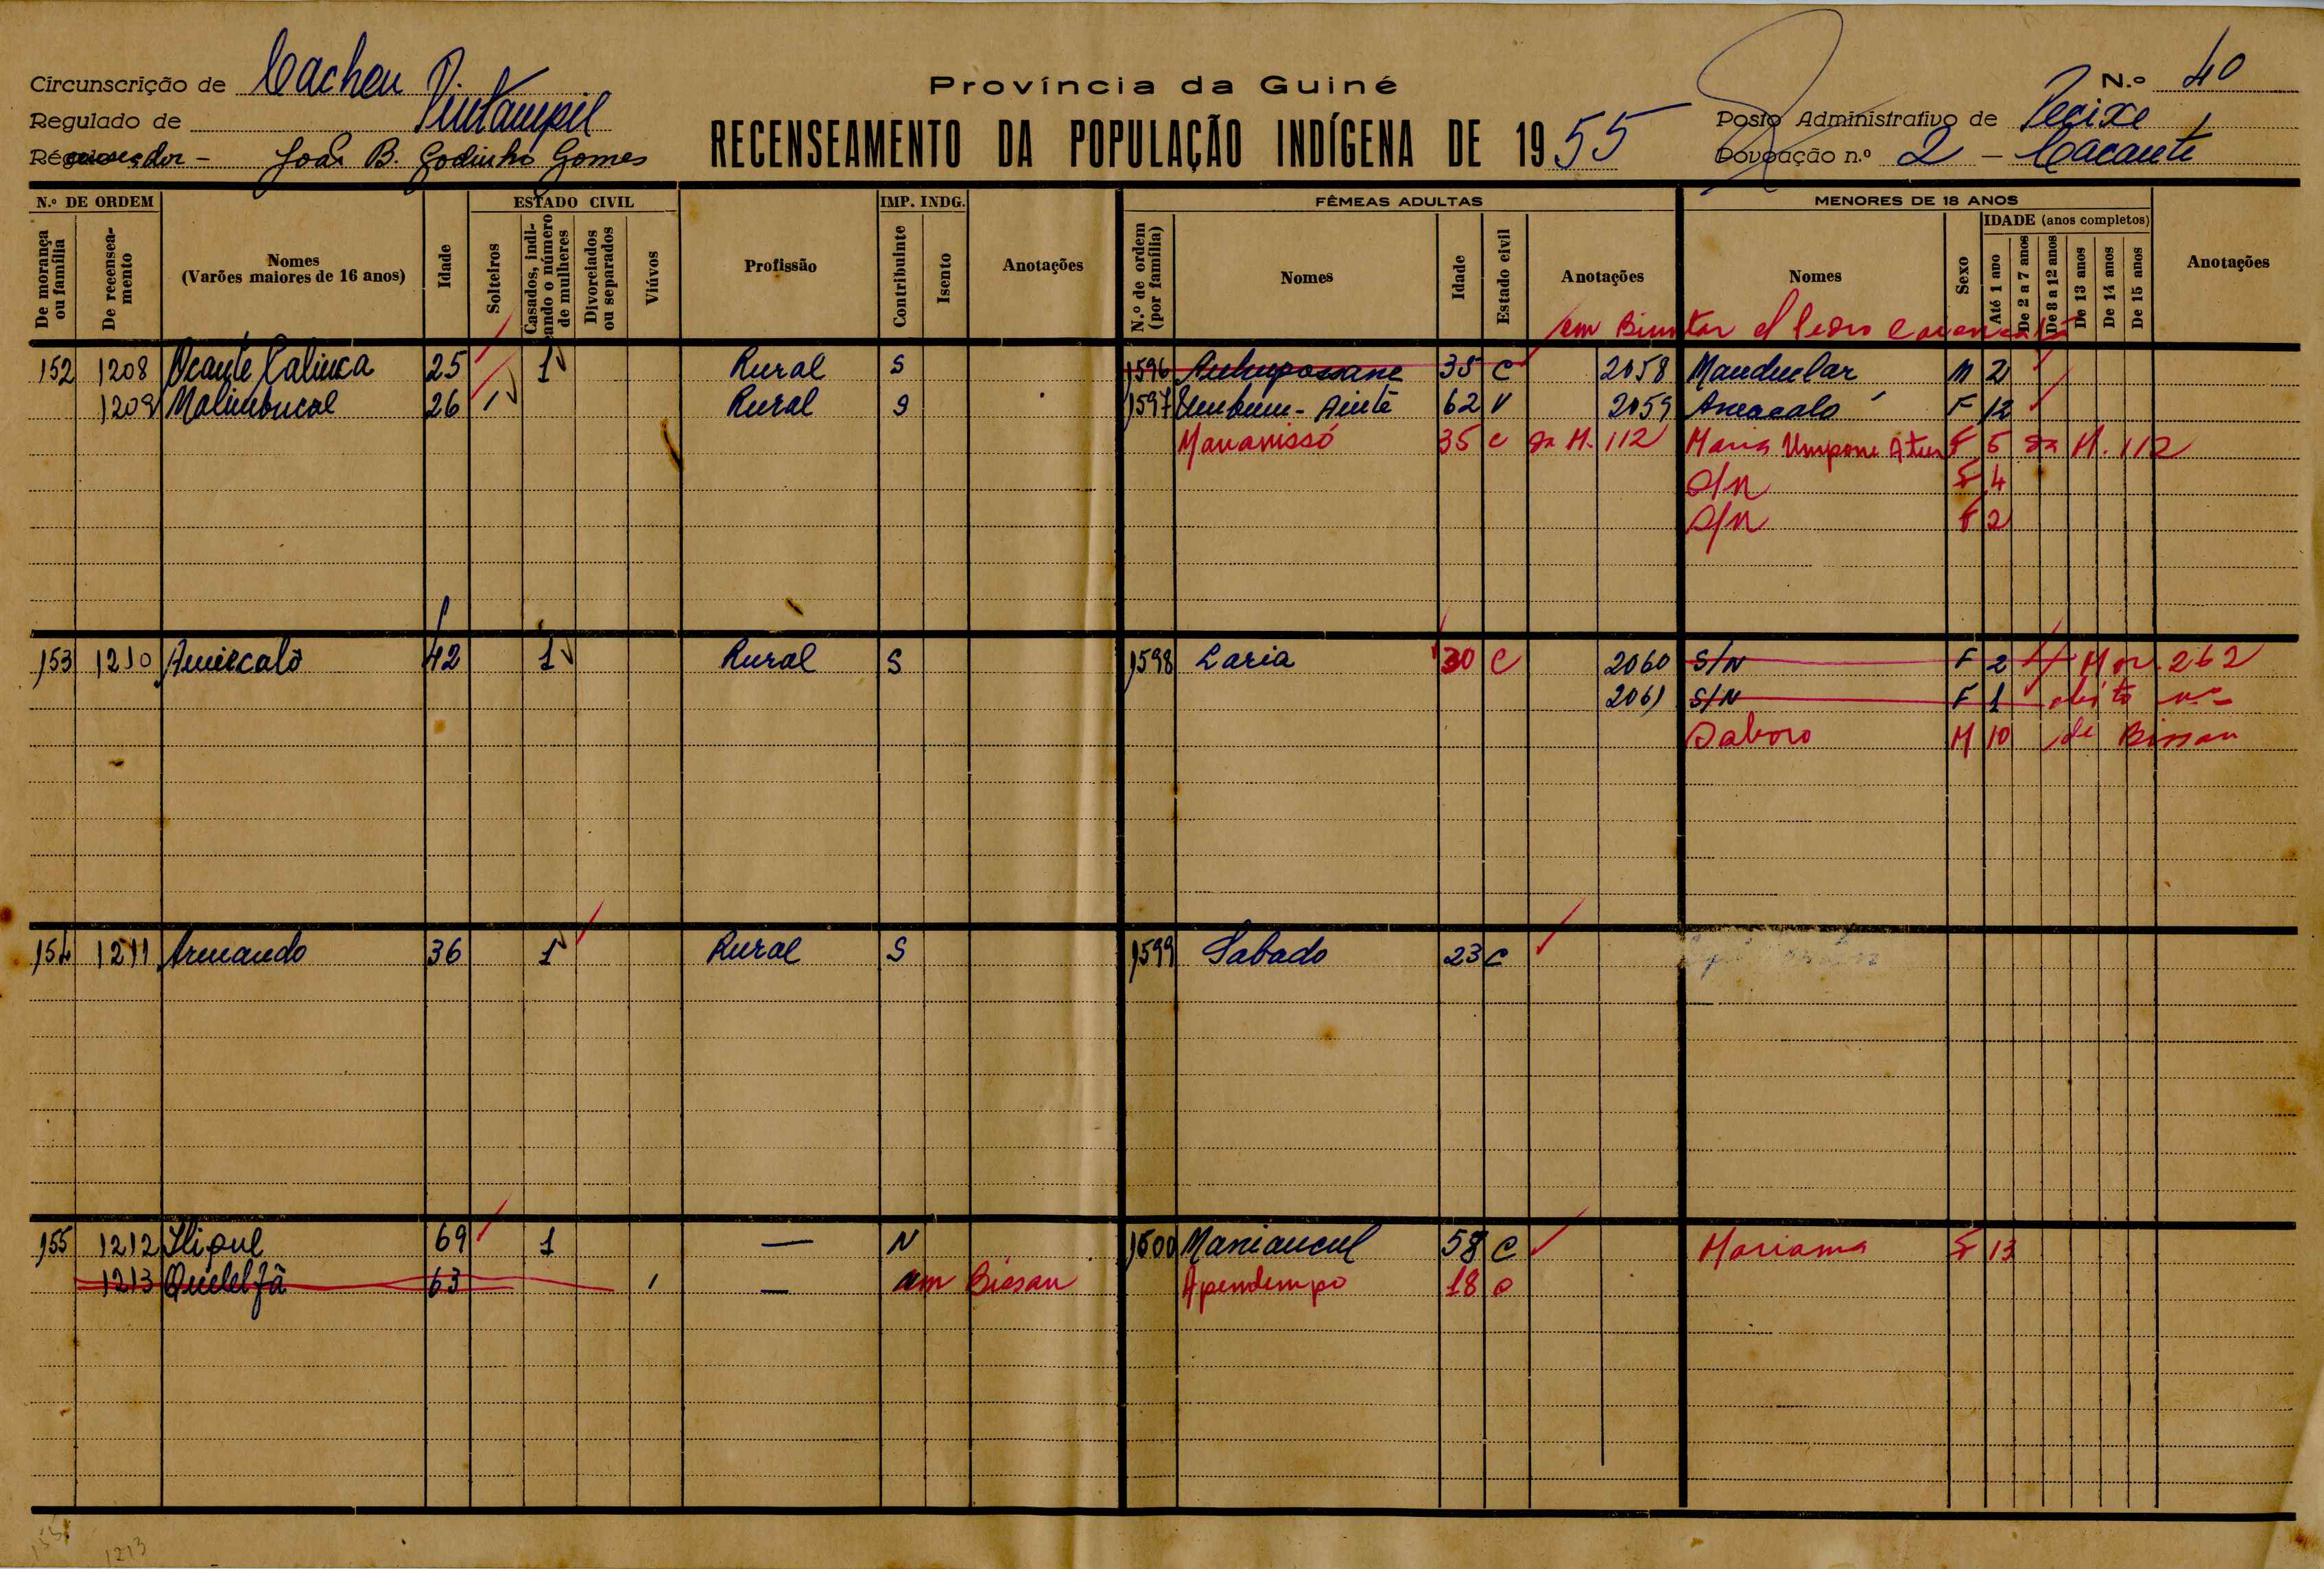 Província da Guiné
RECENSEAMENTO DA POPULAÇÃO INDÍGENA DE 1955
Circunscrição de Cacheu
Regulado de Pintampil
Recenseador - João B. Godinho Gomes
N.º 40
Posto Administrativo de Pecixe
Povoação n.º 2 - Cacante
N.º DE ORDEM
De morança ou família
De recenseamento
Nomes (Varões maiores de 16 anos)
Idade
ESTADO CIVIL
Solteiros
Casados, indicando o número de mulheres
Divorciados ou separados
Viúvos
Profissão
IMP. INDG.
Contribuinte
Isento
Anotações
FÊMEAS ADULTAS
N.º de ordem (por família)
Nomes
Idade
Estado civil
Anotações
MENORES DE 18 ANOS
Nomes
Sexo
IDADE (anos completos)
Até 1 ano
De 2 a 7 anos
De 8 a 12 anos
De 13 anos
De 14 anos
De 15 anos
Anotações
em
152 1208 Ocante 25 1 Rural S 1596 35 C 2058 M 2
1209 26 1 Rural S 1597 62 V 2059 F 12
Mananissó 35 C da M. 112 Maria Umpone F 5 da M. 112
S/N F 4
S/N F 2
153 1210 42 1 Rural S 1598 Laria 30 C 2060 S/N F 2 Mor. 262
2061 S/N F 1
Saboro M 10 de Bissau
154 1211 Armando 36 1 Rural S 1599 Sabado 23 C
155 1212 69 1 — N 1600 58 C Mariama F 13
1213 63 1 — em Bissau Apendempo 18
155
1213